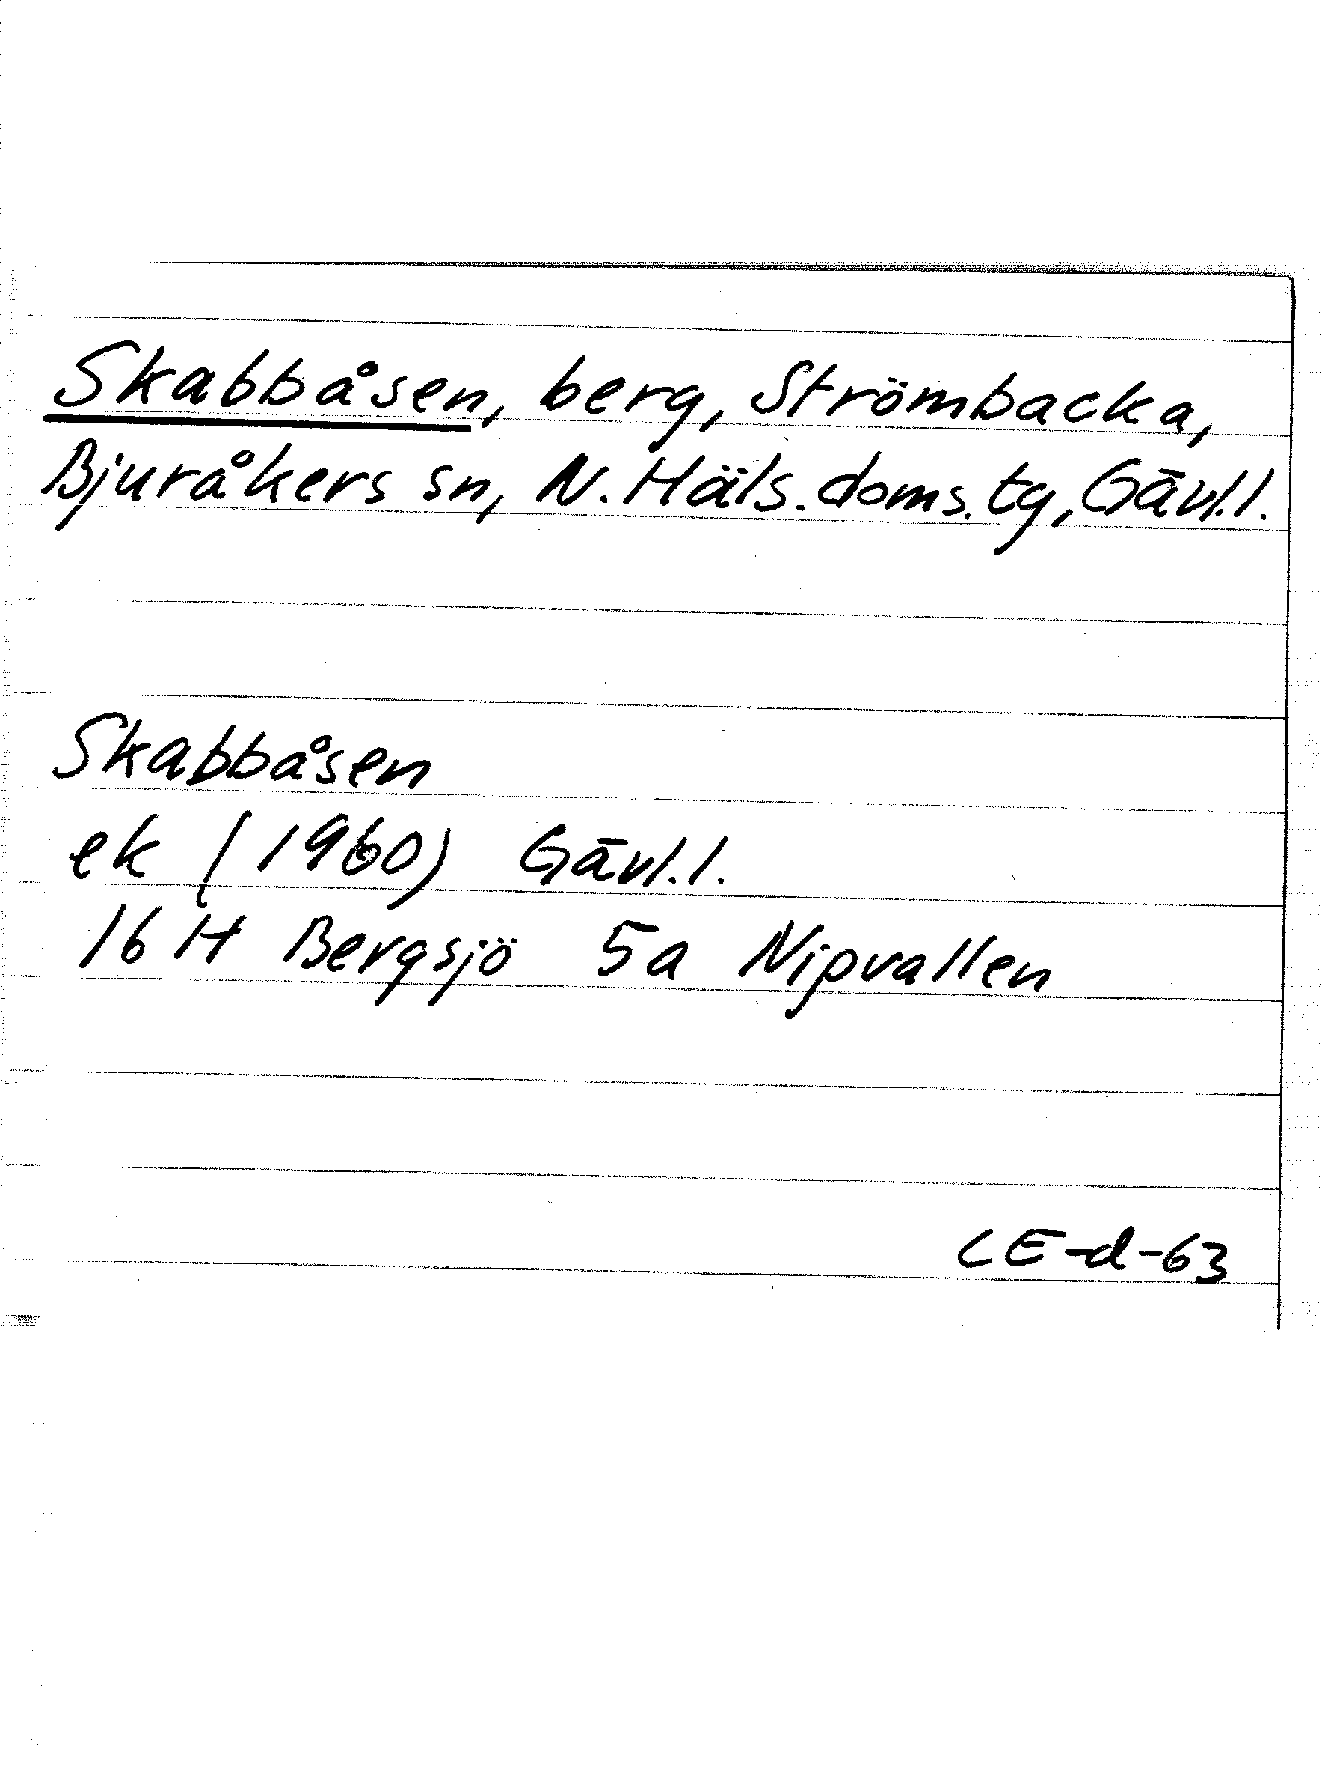 Skabbåsen, berg, Strömbacka,
Bjuråkers sn, N. Häls. doms. tg, Gävl. l.
Skabbåsen
ek (1960) Gävl. l.
16 H Bergsjö 5a Nipvallen
CE-d-63